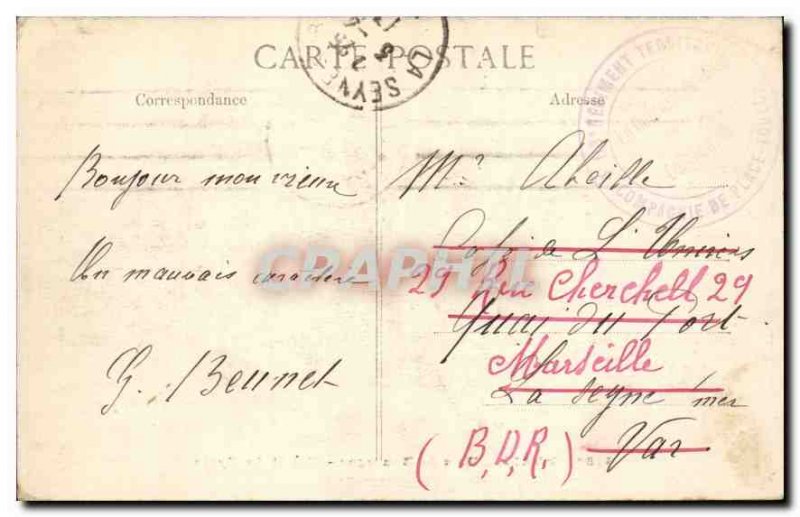 CARTE POSTALE
LA SEYNE
RÉGIMENT TERRITO
COMPAGNIE DE PLACE
Correspondance
Adresse
Bonjour mon vieux
Un mauvais caractère
G. Beunet
Mr Abeille
Café de L'Univers
29 Rue Cherchell 29
Quai du Port
Marseille
La Seyne /mer
Var
(B.D.R.)
CPAPHIL